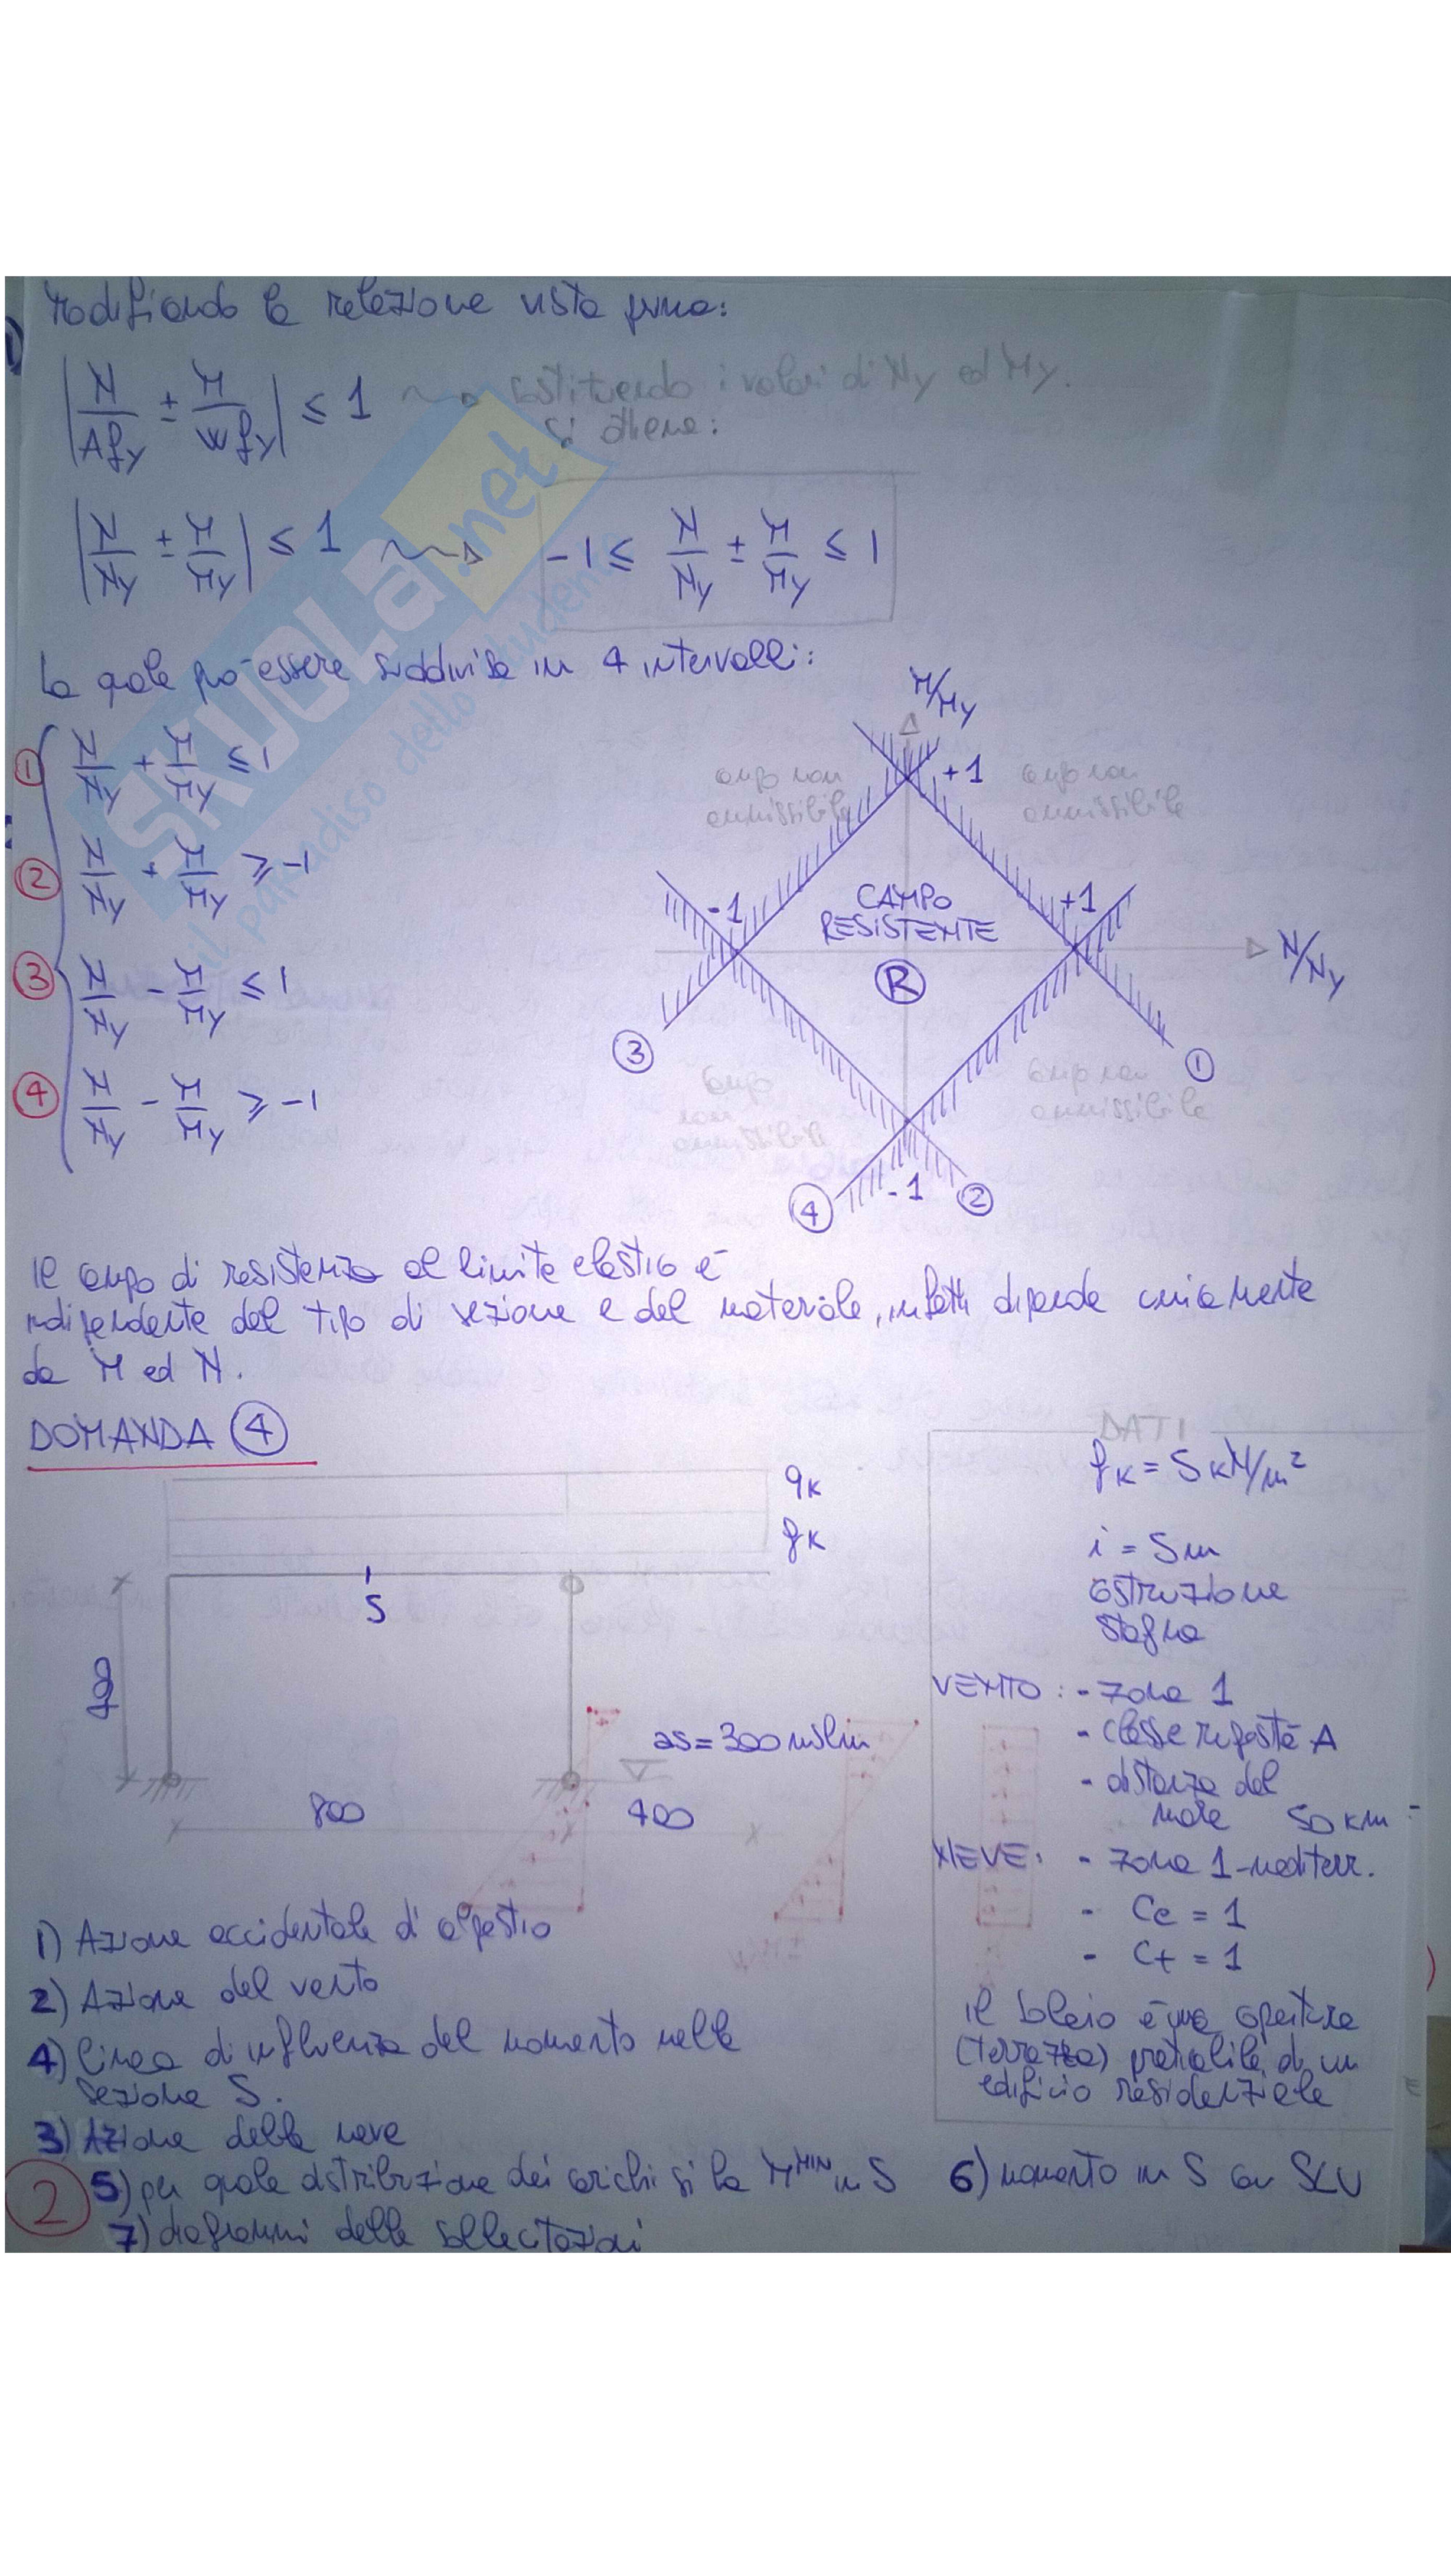 Modificando la relazione vista prima:
| N/Afy ± M/Wfy | ≤ 1 ~> sostituendo i valori di Ny ed My.
si ottiene:
| N/Ny ± M/My | ≤ 1 ~> -1 ≤ N/Ny ± M/My ≤ 1
la quale può essere suddivisa in 4 intervalli:
① N/Ny + M/My ≤ 1
② N/Ny + M/My ≥ -1
③ N/Ny - M/My ≤ 1
④ N/Ny - M/My ≥ -1
M/My
+1
campo non
ammissibile
campo non
ammissibile
-1
CAMPO
RESISTENTE
R
+1
N/Ny
③
①
campo
non
ammissibile
campo non
ammissibile
④
-1
②
Il campo di resistenza al limite elastico è
indipendente dal tipo di sezione e dal materiale, infatti dipende unicamente
da M ed N.
DOMANDA ④
qk
gk
S
as = 300 mslm
800
400
DATI
gk = 5 kN/m²
i = 5m
costruzione
stagna
VENTO: - zona 1
- classe rugosità A
- distanza dal
mare 50 km
NEVE: - zona 1-mediterr.
- Ce = 1
- Ct = 1
il solaio è una copertura
(terrazza) praticabile di un
edificio residenziale
1) Azione accidentale di calpestio
2) Azione del vento
4) linea di influenza del momento nella
sezione S.
3) Azione della neve
② 5) per quale distribuzione dei carichi si ha M^MIN in S 6) momento in S con SLU
7) diagrammi delle sollecitazioni
SKUOLA.net
il paradiso dello studente